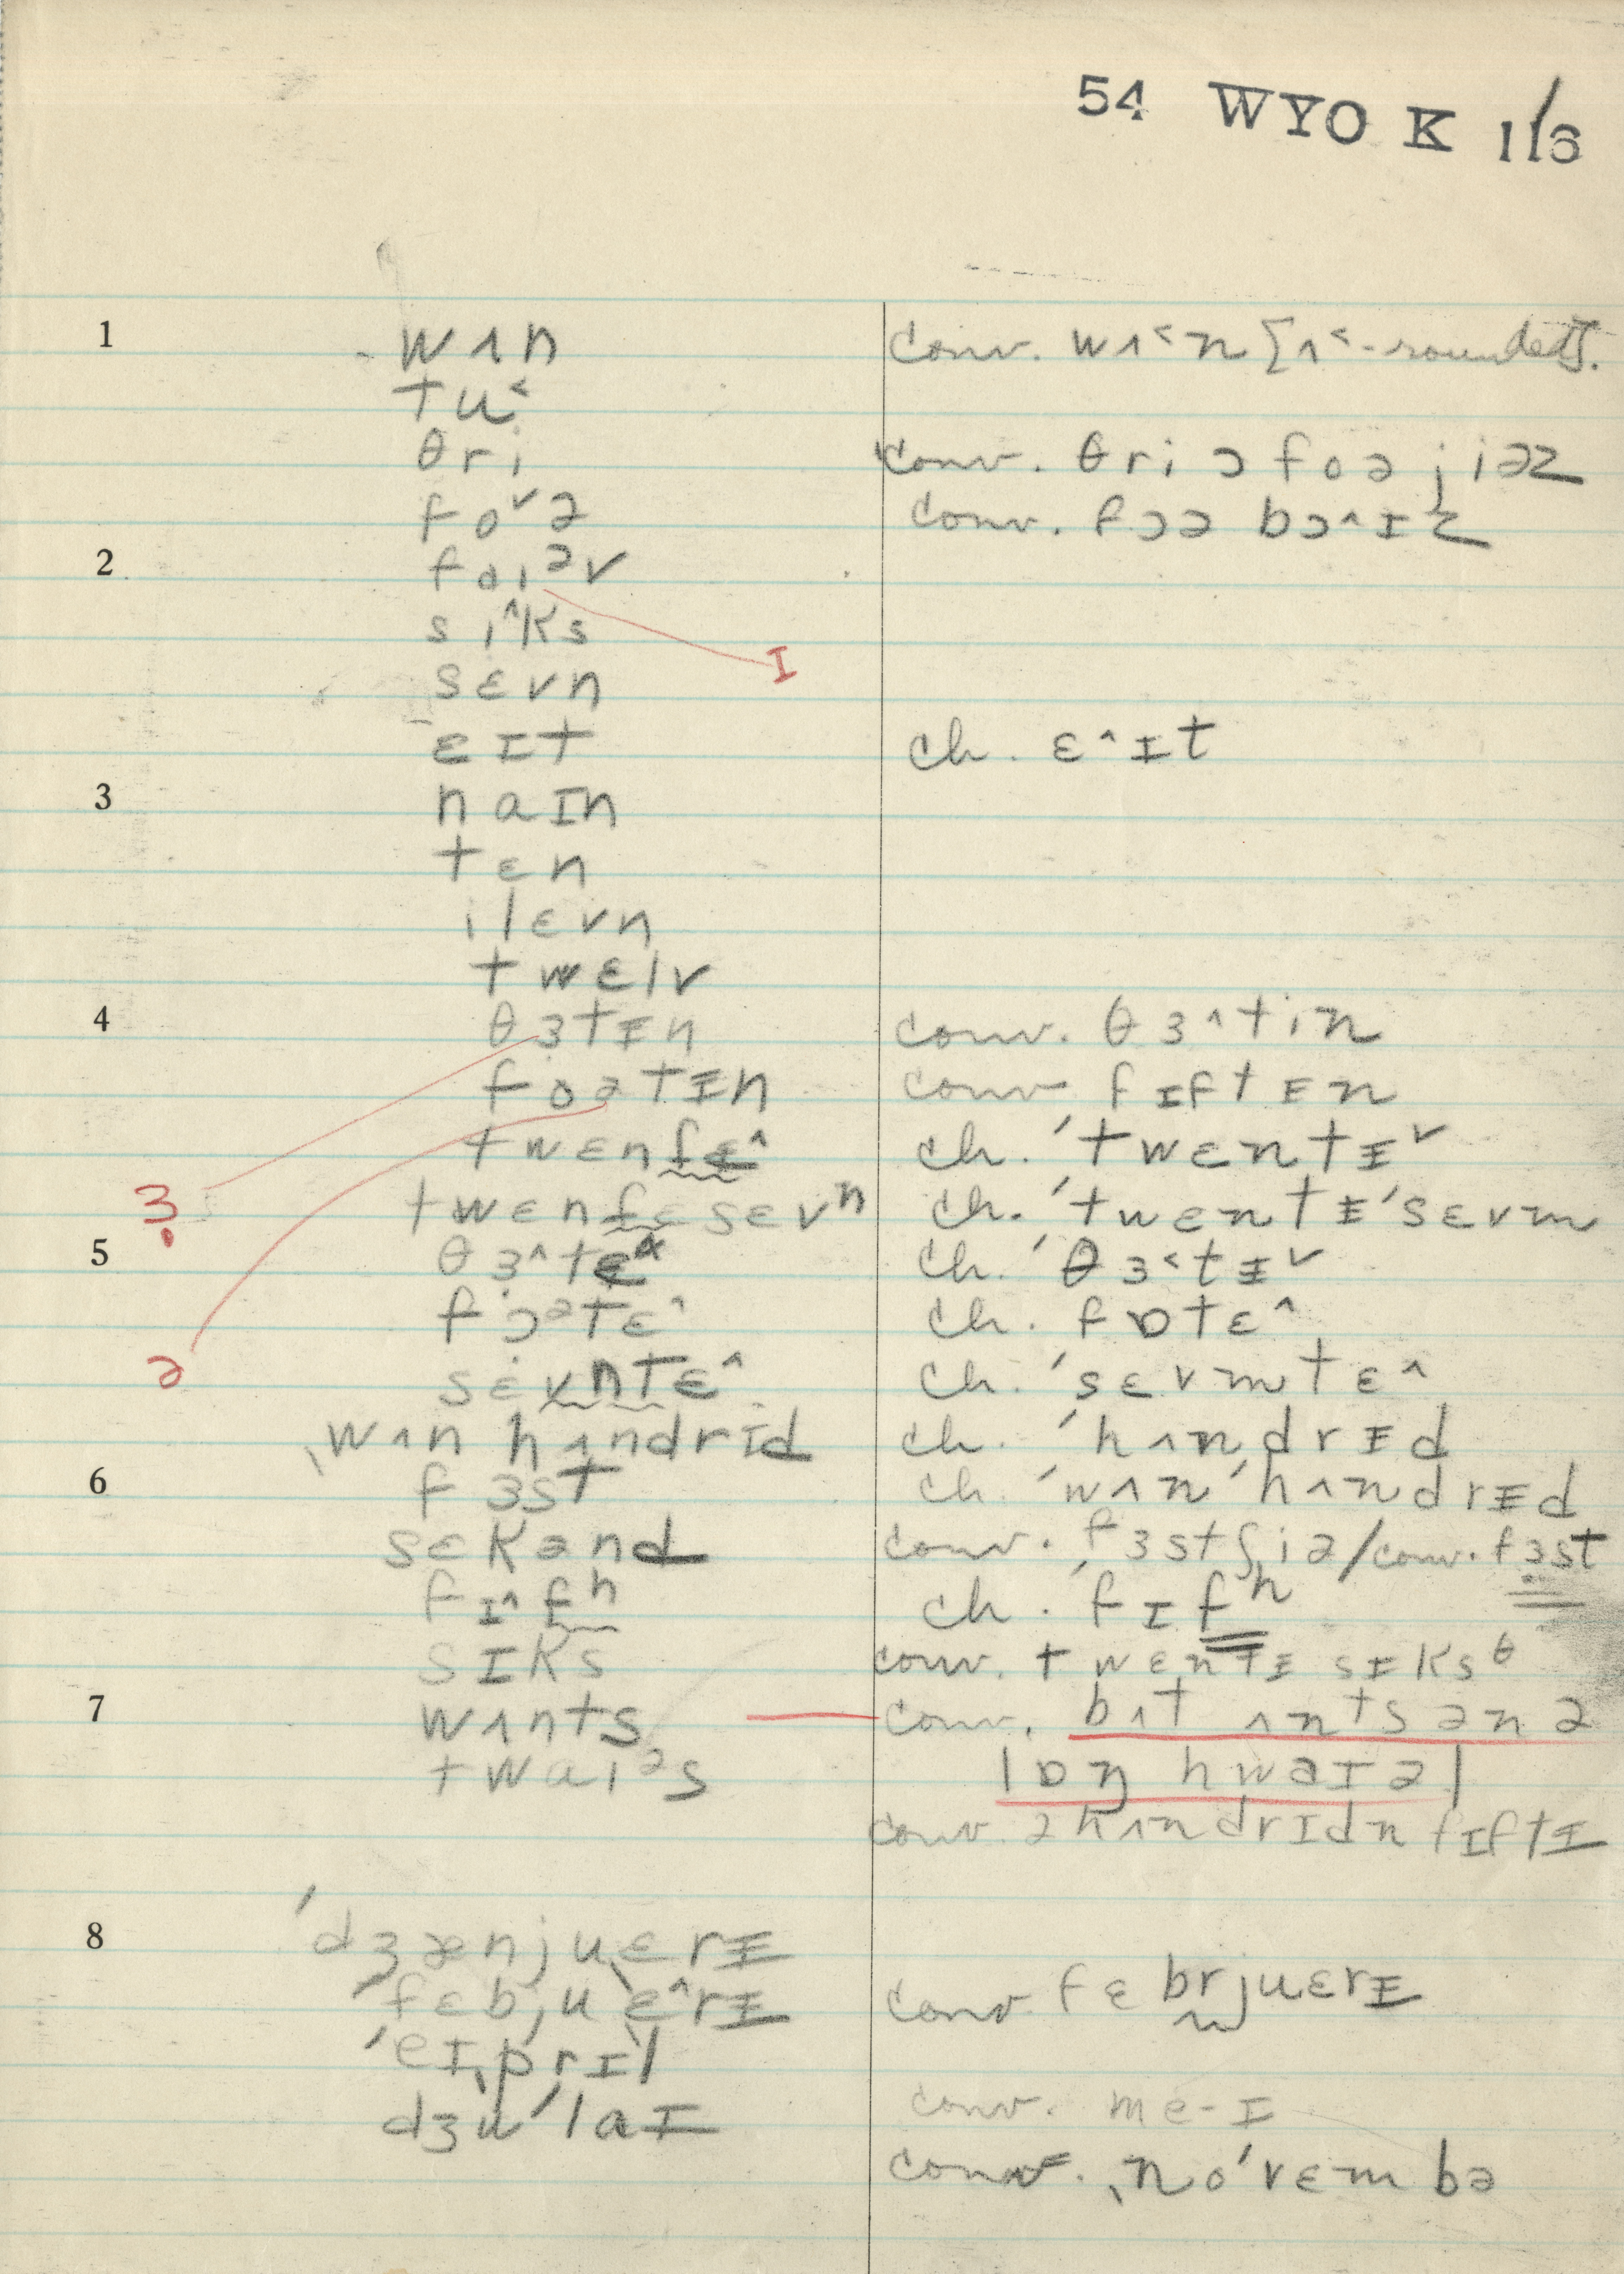 54 WYO K 1/3
1 wʌn conv. wʌ˂n [ʌ˂-rounded].
tu˂
θri conv. θri ɔ foə jiəz
fo˅ə conv. fɔə bɔ˄ɪz
2 fɑiᵊv
si˄ks
I
sɛvn
ɛɪt ch. ɛ˄ɪt
3 naɪn
tɛn
ilɛvn
twɛlv
4 θɜtɪn conv. θɜ˄tin
foətɪn conv fɪftɪn
twɛn ch. ˈtwɛntɪ˅
ɜ ch. ˈtwɛntɪˈsɛvm
5 ch. ˈθɜ˂tɪ˅
fɔᵊtɛ˄ ch. fɒtɛ˄
ə sɛvntɛ˄ ch. ˈsɛvmtɛ˄
ˌwʌn hʌndrɪd ch. ˈhʌndrɪd
6 fɜst ch. ˈwʌnˈhʌndrɪd
sɛkənd conv. fɜstʃiə/conv. fɜst
fɪ˄fʰ ch. ˈfɪfʰ
sɪks conv. twɛntɪ sɪksᶿ
7 wʌnts conv. bʌt ʌnts ən ə
twaiᵊs lɒŋ hwaɪəl
conv. əhʌndrɪdn fɪftɪ
8 ˈdʒænjuˌɛrɪ
ˈfɛbjuˌɛ˄rɪ conv. fɛbrjuɛrɪ
ˈeɪˌprɪl
dʒuˈlaɪ conv. me-ɪ
conv. ˌnoˈvɛmbə